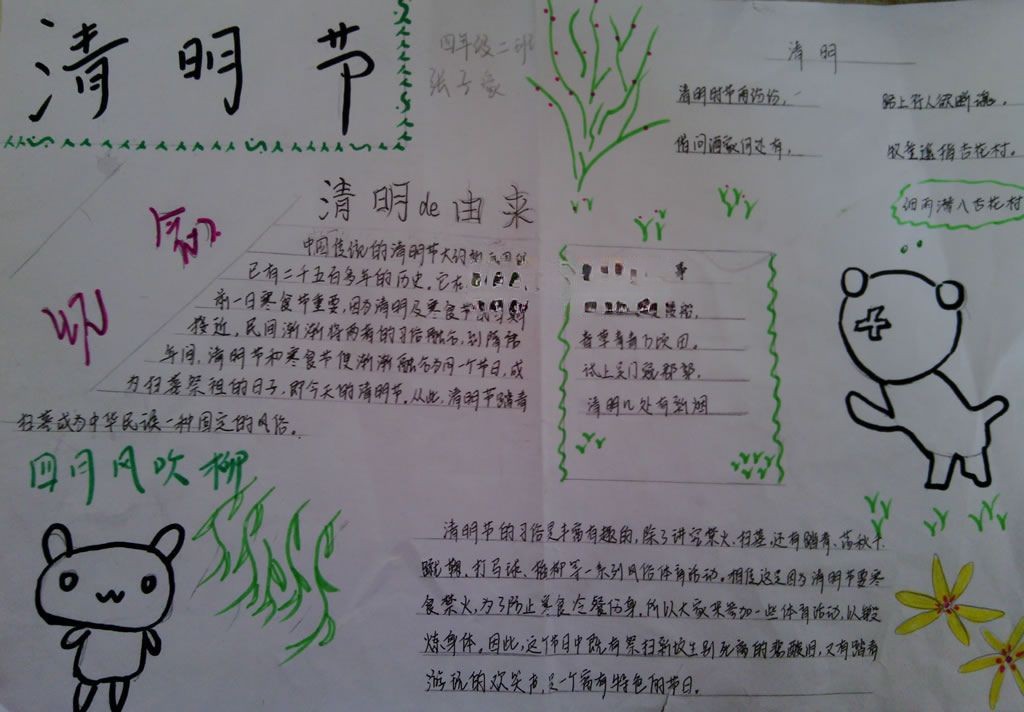 清明节
四年级二班
张子豪
清明
清明时节雨纷纷,
路上行人欲断魂。
借问酒家何处有,
牧童遥指杏花村。
细雨潜入杏花村
清明de由来
中国传统的清明节大约始
已有二千五百多年的历史。它在
前一日寒食节重要,因为清明及寒食节
接近,民间渐渐将两者的习俗融合,到隋唐
年间,清明节和寒食节便渐渐融合为同一个节日,成
为扫墓祭祖的日子,即今天的清明节。从此,清明节踏青
扫墓成为中华民族一种固定的风俗。
春草青青万顷田。
试上吴门窥郡郭,
清明几处有新烟
四月风吹柳
清明节的习俗是丰富有趣的,除了讲究禁火、扫墓,还有踏青、荡秋千、
蹴鞠、打马球、插柳等一系列风俗体育活动。相传这是因为清明节要寒
食禁火,为了防止寒食冷餐伤身,所以大家来参加一些体育活动,以锻
炼身体。因此,这个节日中既有祭扫新坟生别死离的悲酸泪,又有踏青
游玩的欢笑声,是一个富有特色的节日。